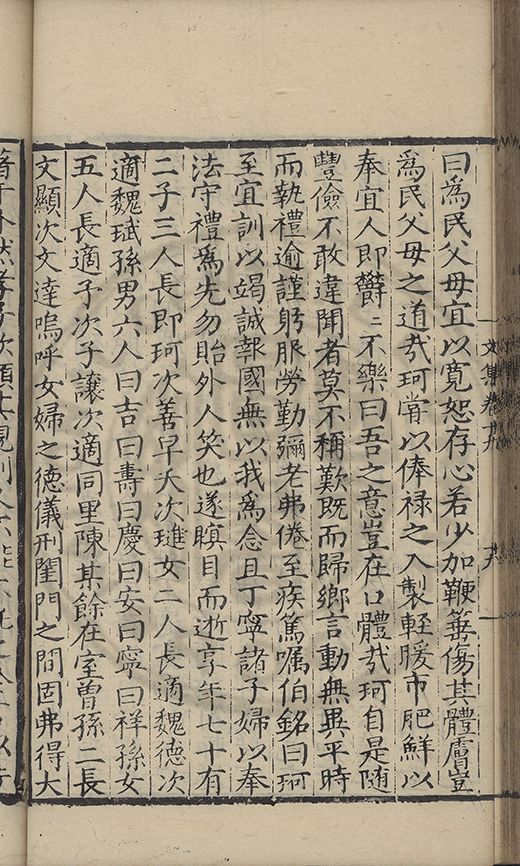 文集卷十九
十六
曰爲民父母宜以寬恕存心若少加鞭箠傷其體膚豈
爲民父母之道㢤珂甞以俸禄之入製輕暖市肥鮮以
奉宜人即欝〻不樂曰吾之意豈在口體㢤珂自是随
豐儉不敢違聞者莫不稱歎既而歸鄉言動無異平時
而執禮逾謹躬服勞勤彌老弗倦至疾篤嘱伯銘曰珂
至宜訓以竭誠報國無以我爲念且丁寧諸子婦以奉
法守禮爲先勿貽外人笑也遂瞑目而逝享年七十有
二子三人長即珂次善早夭次琟女二人長適魏德次
適魏珷孫男六人曰吉曰壽曰慶曰安曰寧曰祥孫女
五人長適子次子讓次適同里陳某餘在室曽孫二長
文顯次文達嗚呼女婦之德儀刑閨門之間固弗得大